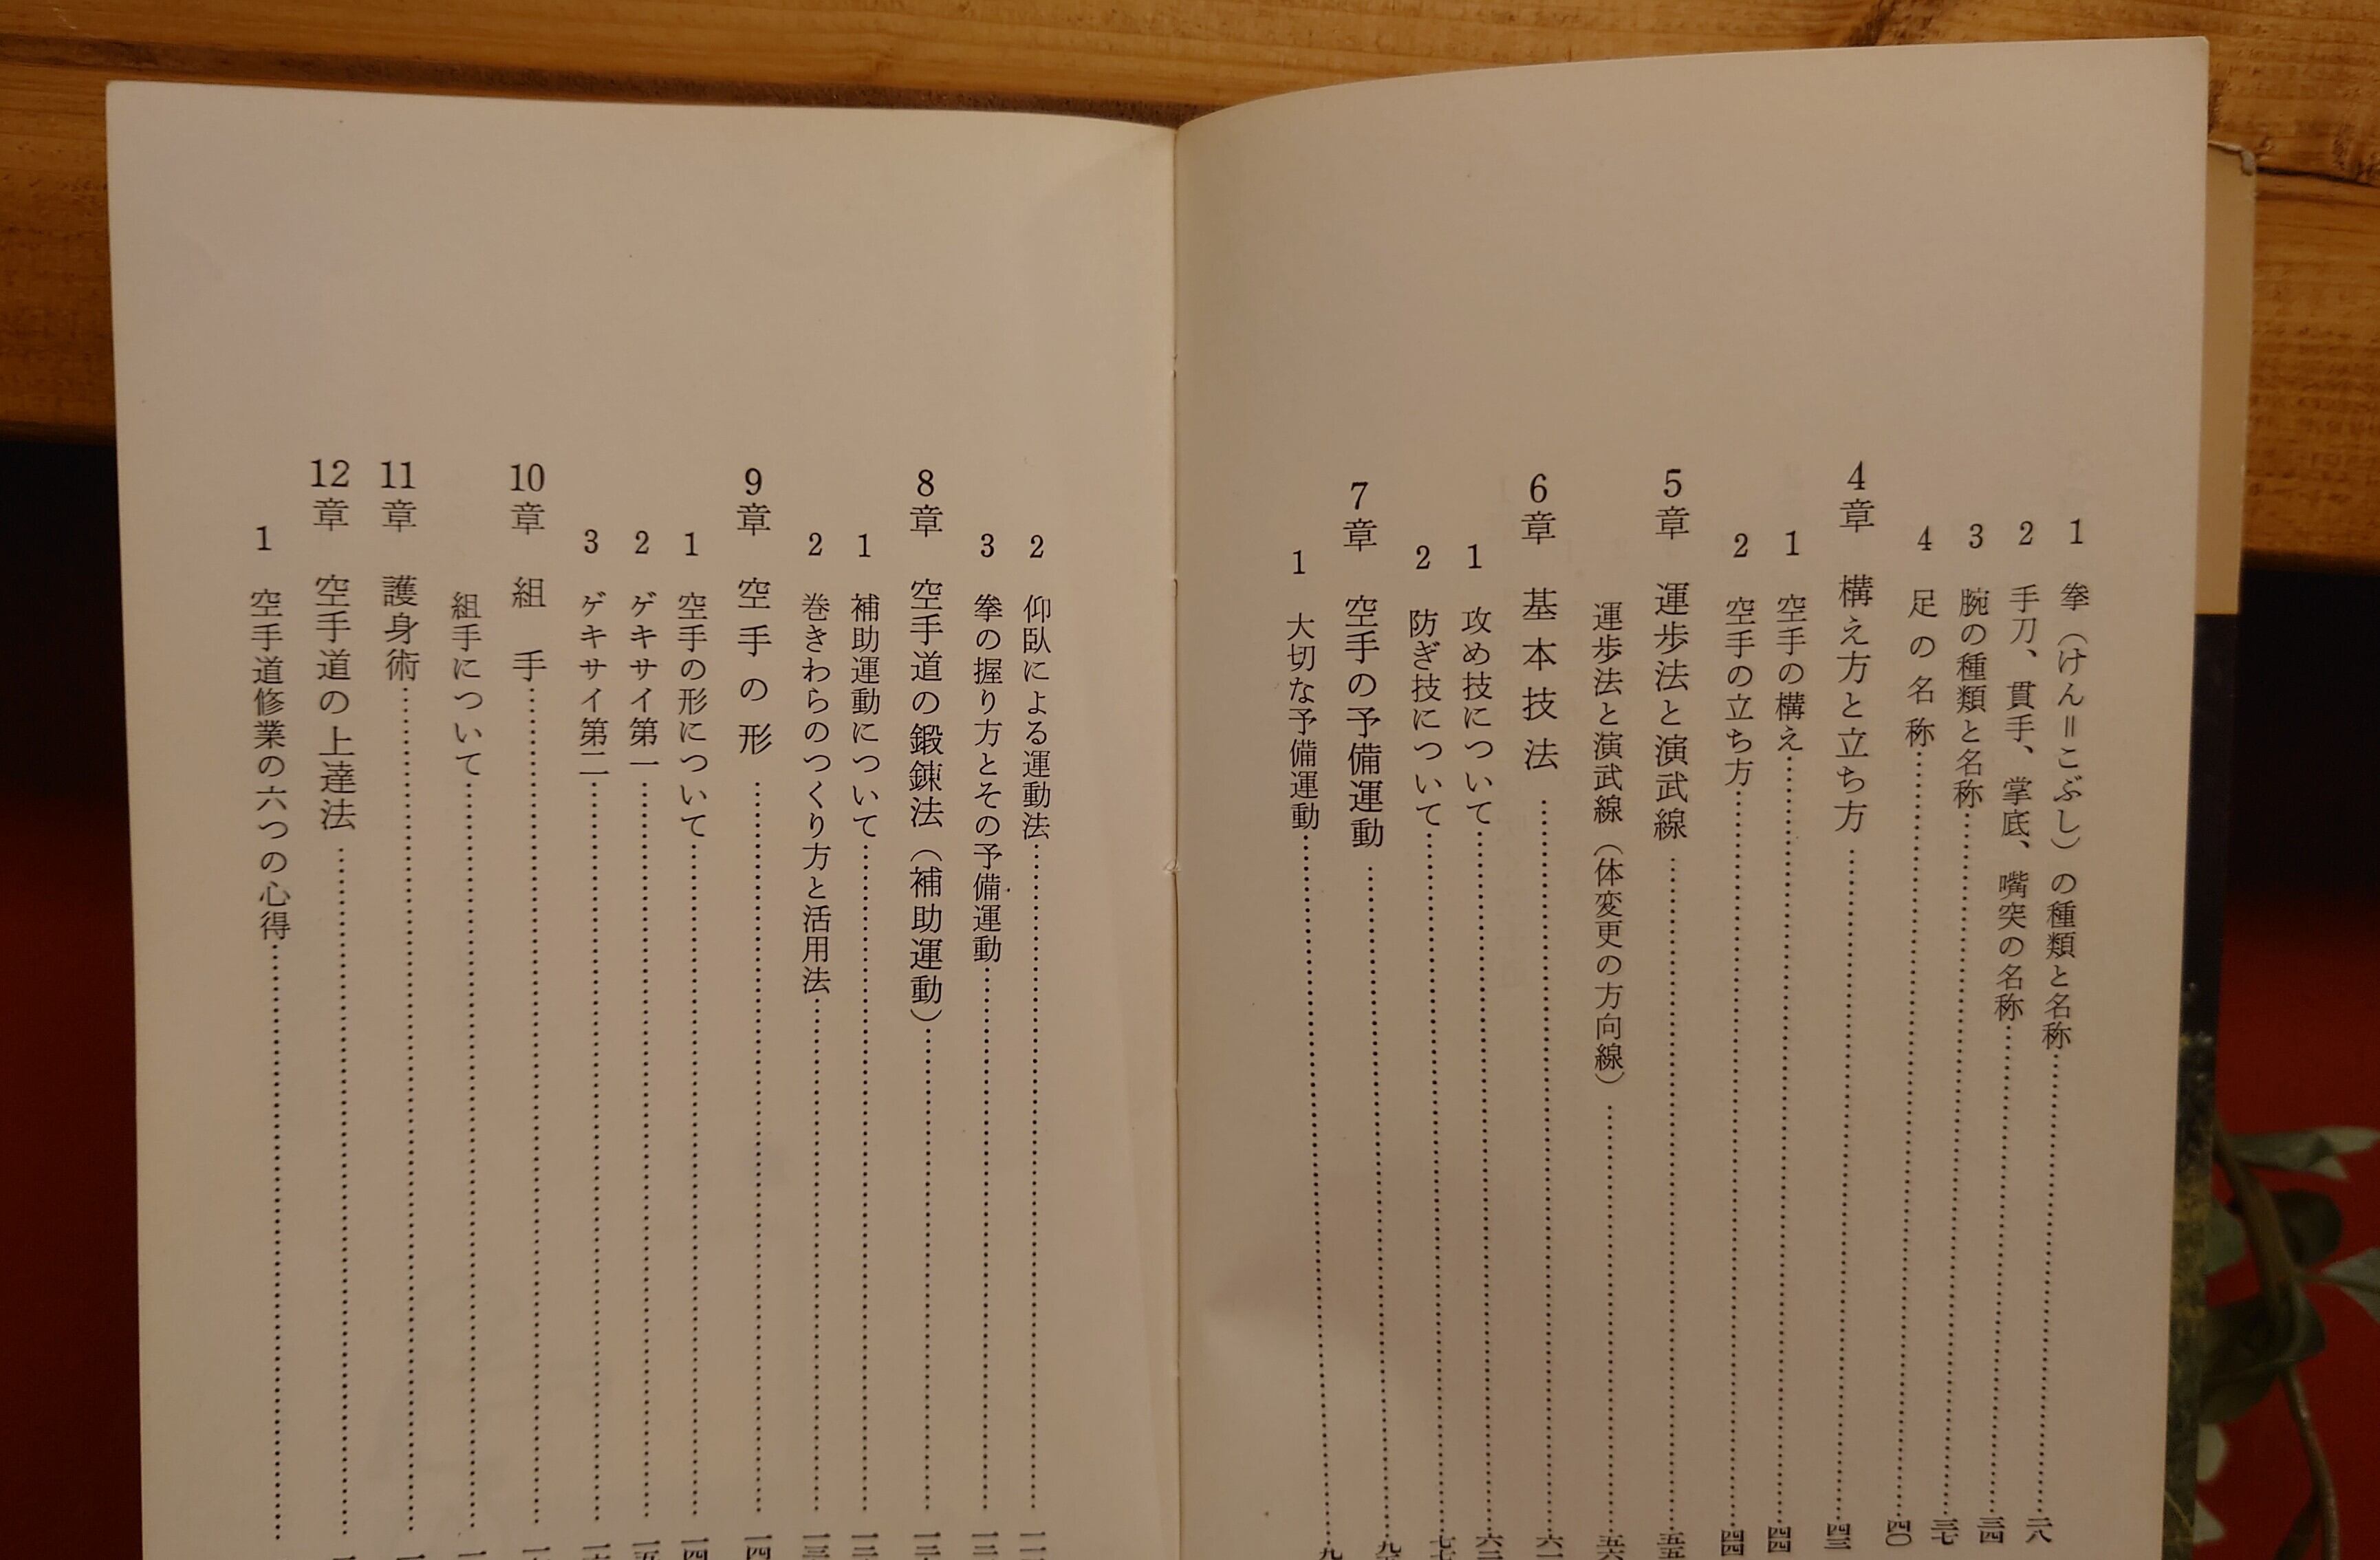 1 拳（けん＝こぶし）の種類と名称……二八
2 手刀、貫手、掌底、嘴突の名称……三四
3 腕の種類と名称……三七
4 足の名称……四〇
4章 構え方と立ち方……四三
1 空手の構え……四四
2 空手の立ち方……四四
5章 運歩法と演武線……五五
運歩法と演武線（体変更の方向線）……五六
6章 基本技法……
1 攻め技について……
2 防ぎ技について……
7章 空手の予備運動……
1 大切な予備運動……
2 仰臥による運動法……
3 拳の握り方とその予備運動……
8章 空手道の鍛錬法（補助運動）……
1 補助運動について……
2 巻きわらのつくり方と活用法……
9章 空手の形……
1 空手の形について……
2 ゲキサイ第一……
3 ゲキサイ第二……
10章 組手……
組手について……
11章 護身術……
12章 空手道の上達法……
1 空手道修業の六つの心得……